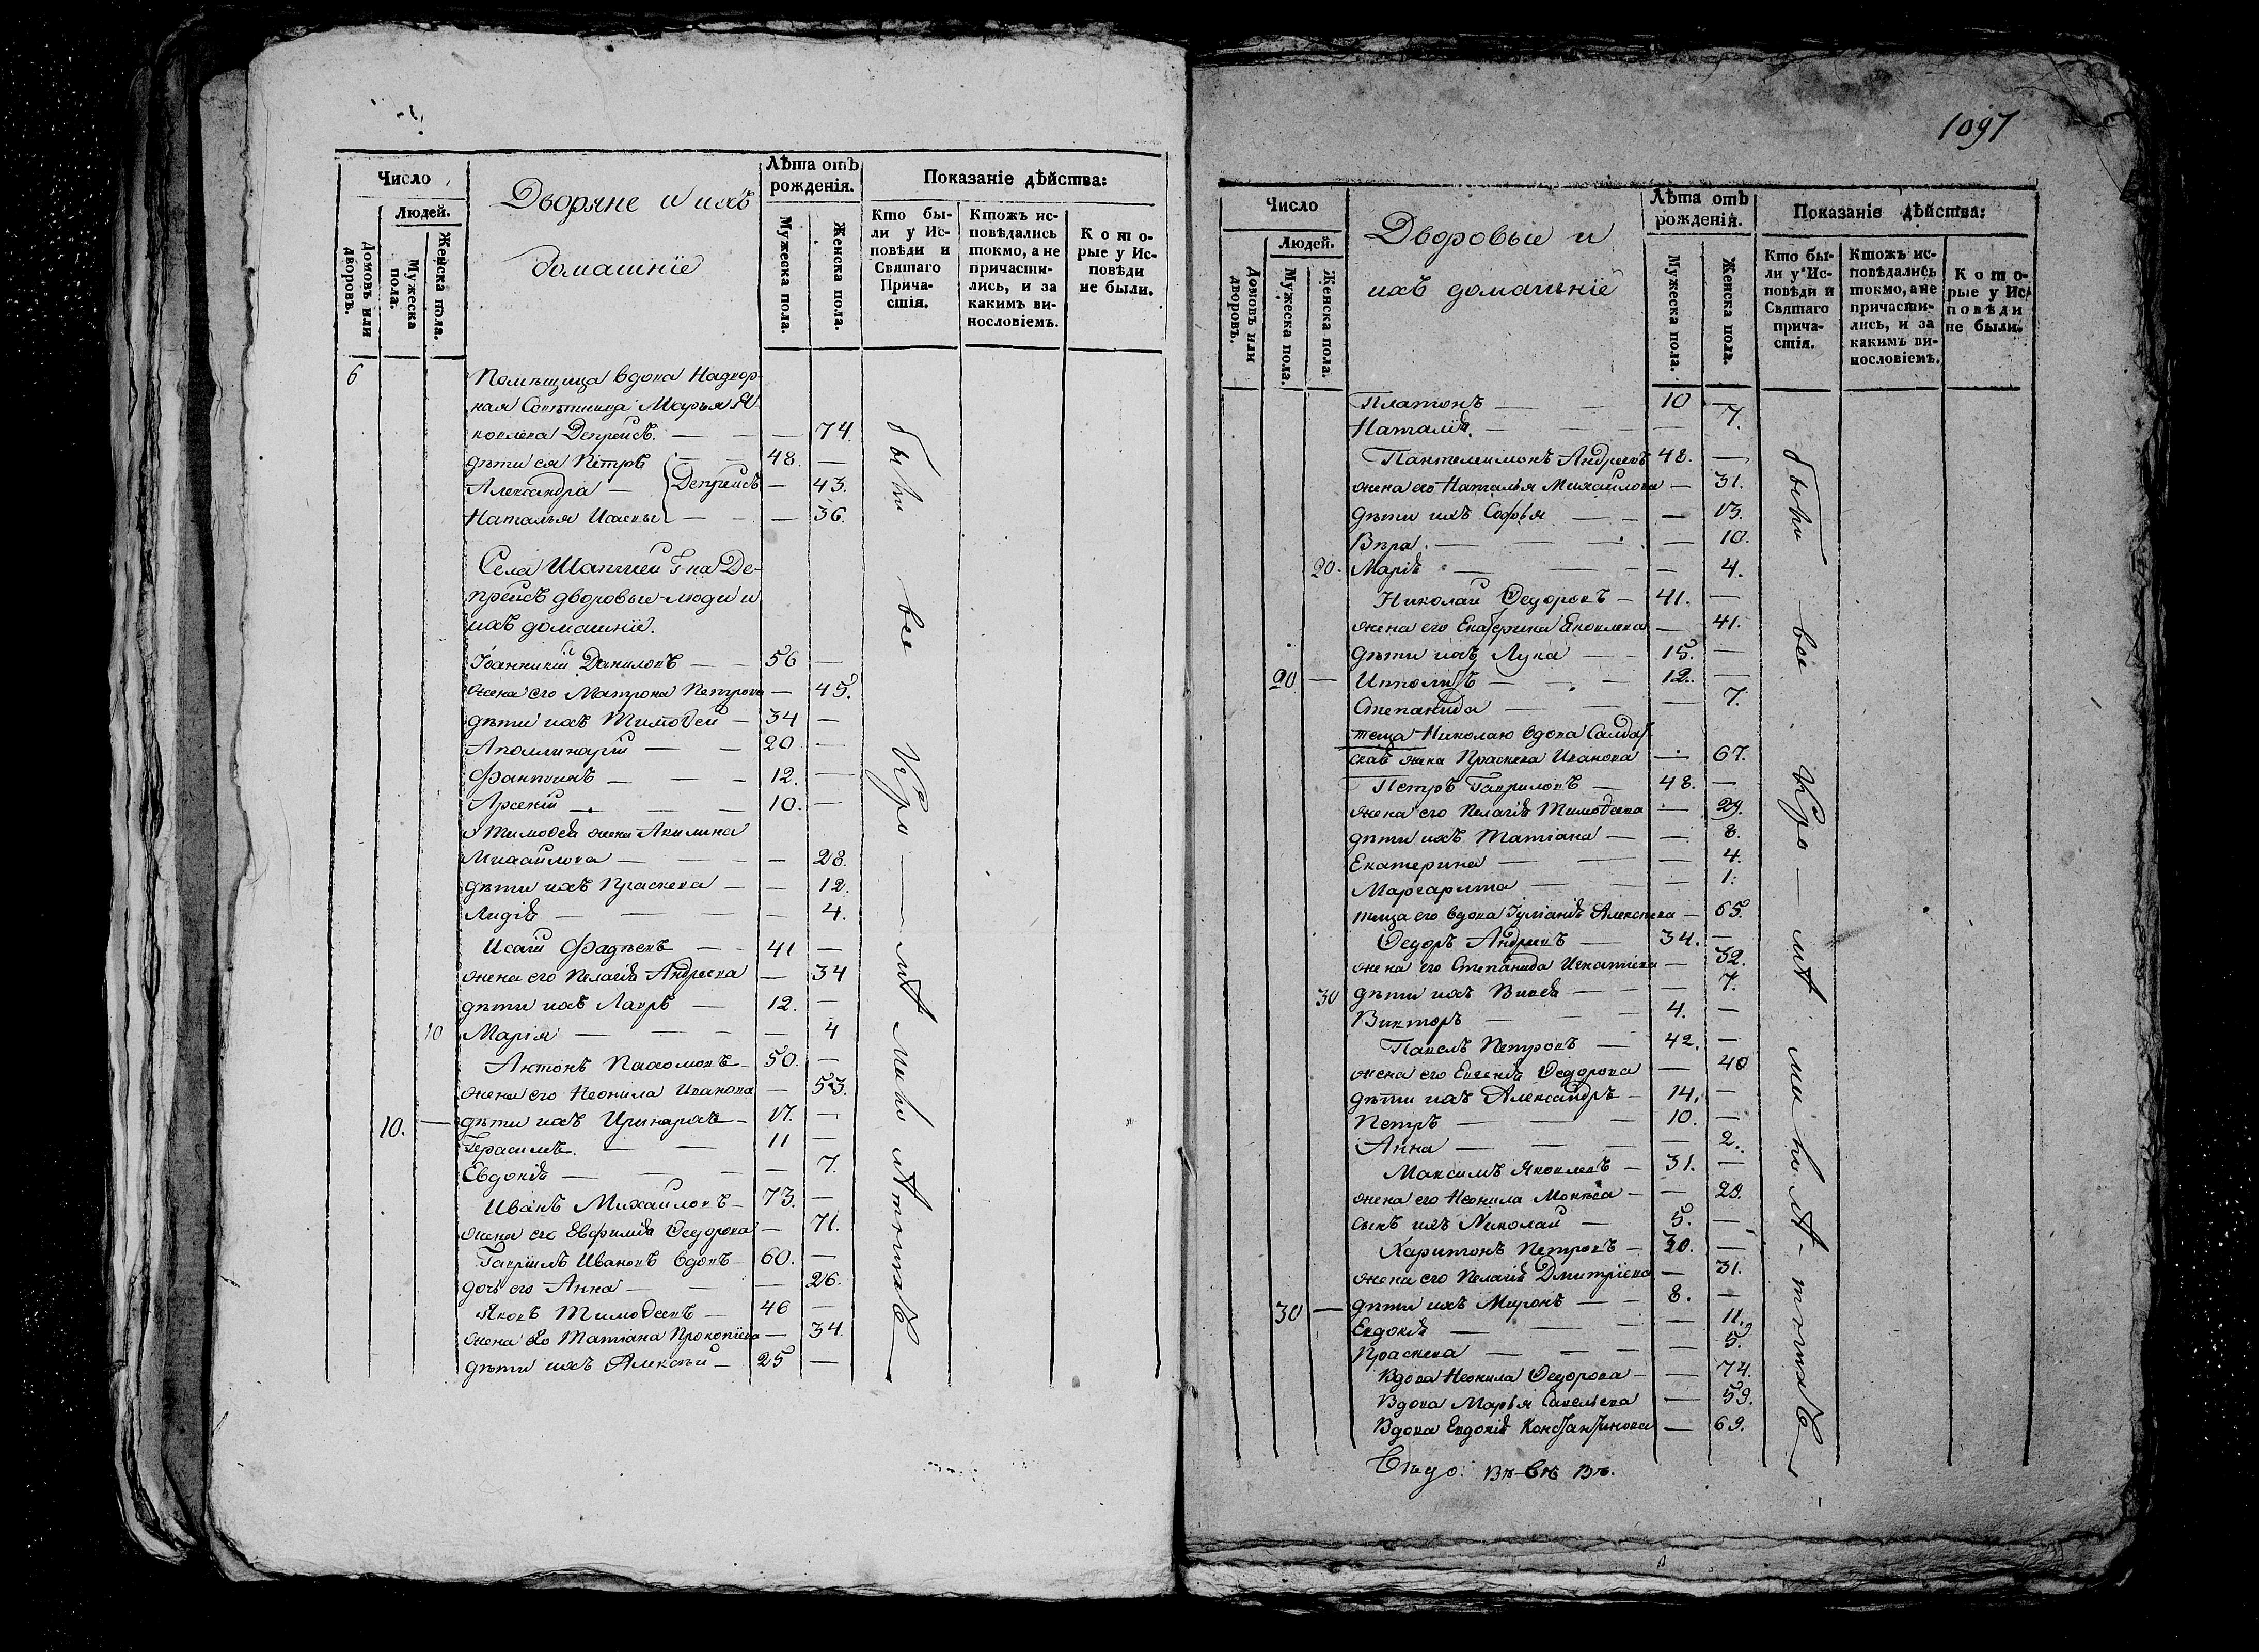 Число
Людей.
Домовъ или дворовъ.
Мужеска пола.
Женска пола.
Дворяне и ихъ
домашніе
Лѣта отъ
рожденія.
Мужеска пола.
Женска пола.
Показаніе дѣйства:
Кто бы-
ли у Ис-
повѣди и
Святаго
Прича-
стія.
Ктожъ ис-
повѣдались
токмо, а не
причасти-
лись, и за
какимъ ви-
нословіемъ.
Кото-
рые у Ис-
повѣди
не были.
6 Помѣщица вдова Надвор-
ная Совѣтница Марья Я-
ковлева Депрейсъ. — — 74.
дѣти ея Петръ — 48. —
Александра — Депрейсъ — 43.
Наталья Исаевы — — 36.
Села Шапчицъ Г-на Де-
прейсъ дворовые люди и
ихъ домашніе.
Іоанникій Даниловъ — 56 —
жена его Матрона Петрова — 45.
дѣти ихъ Тимоѳей — 34 —
Аполлинарій — 20 —
Фантинъ — 12. —
Арсеній — 10. —
Тимоѳея жена Акилина
Михайлова — — 28.
дѣти ихъ Праскева — — 12.
Лидія — — 4.
Исаій Фадѣевъ — 41 —
жена его Пелагія Андреева — 34
дѣти ихъ Лавръ — 12. —
10 Марія — — 4
Антонъ Пахомовъ — 50. —
жена его Неонила Иванова — 53.
10. — дѣти ихъ Иринархъ — 17. —
Герасимъ. — 11 —
Евдокія — — 7.
Иванъ Михайловъ — 73. —
жена его Евфимія Ѳедорова — 71.
Гавріилъ Ивановъ вдовъ — 60. —
дочь его Анна — — 26.
Яковъ Тимоѳеевъ — 46 —
жена его Татіана Прокопіева — 34.
дѣти ихъ Алексѣй — 25 —
были все
1097
Число
Людей.
Домовъ или дворовъ.
Мужеска пола.
Женска пола.
Дворовые и
ихъ домашніе
Лѣта отъ
рожденія.
Мужеска пола.
Женска пола.
Показаніе дѣйства:
Кто бы-
ли у Ис-
повѣди и
Святаго
прича-
стія.
Ктожъ ис-
повѣдались
токмо, а не
причасти-
лись, и за
какимъ ви-
нословіемъ.
Кото-
рые у Ис-
повѣди
не были.
Платонъ — 10 —
Наталія. — — 7.
Пантелеимонъ Андреевъ 48. —
жена его Наталья Михайлова — 31.
дѣти ихъ Софья — — 13.
Вѣра. — — 10.
20. Марія — — 4.
Николай Ѳедоровъ — 41. —
жена его Екатерина Яковлева — 41.
дѣти ихъ Лука — 15. —
20 — Ипполитъ — 12. —
Степанида — — 7.
теща Николаю вдова Салдат-
ская жена Праскева Иванова — 67.
Петръ Гавриловъ — 48. —
жена его Пелагія Тимоѳеева — 29.
дѣти ихъ Татіана — — 8.
Екатерина — — 4.
Маргарита — — 1.
теща его вдова Іуліанія Алексѣева — 65.
Ѳедоръ Андреевъ — 34. —
жена его Степанида Игнатіева — 32.
30 дѣти ихъ — — 7.
Викторъ — 4. —
Павелъ Петровъ — 42. —
жена его Евгенія Ѳедорова — 40
дѣти ихъ Александръ — 14. —
Петръ — 10. —
Анна — — 2.
Максимъ Яковлевъ — 31. —
жена его Неонила — 29.
сынъ ихъ Николай — 5. —
Харитонъ Петровъ — 30. —
жена его Пелагія Дмитріева — 31.
30 — дѣти ихъ Миронъ — 8. —
Евдокія — — 11.
Праскева — — 5.
Вдова Неонила Ѳедорова — — 74.
Вдова Марья Савельева — 59.
Вдова Евдокія Константинова — 69.
были все